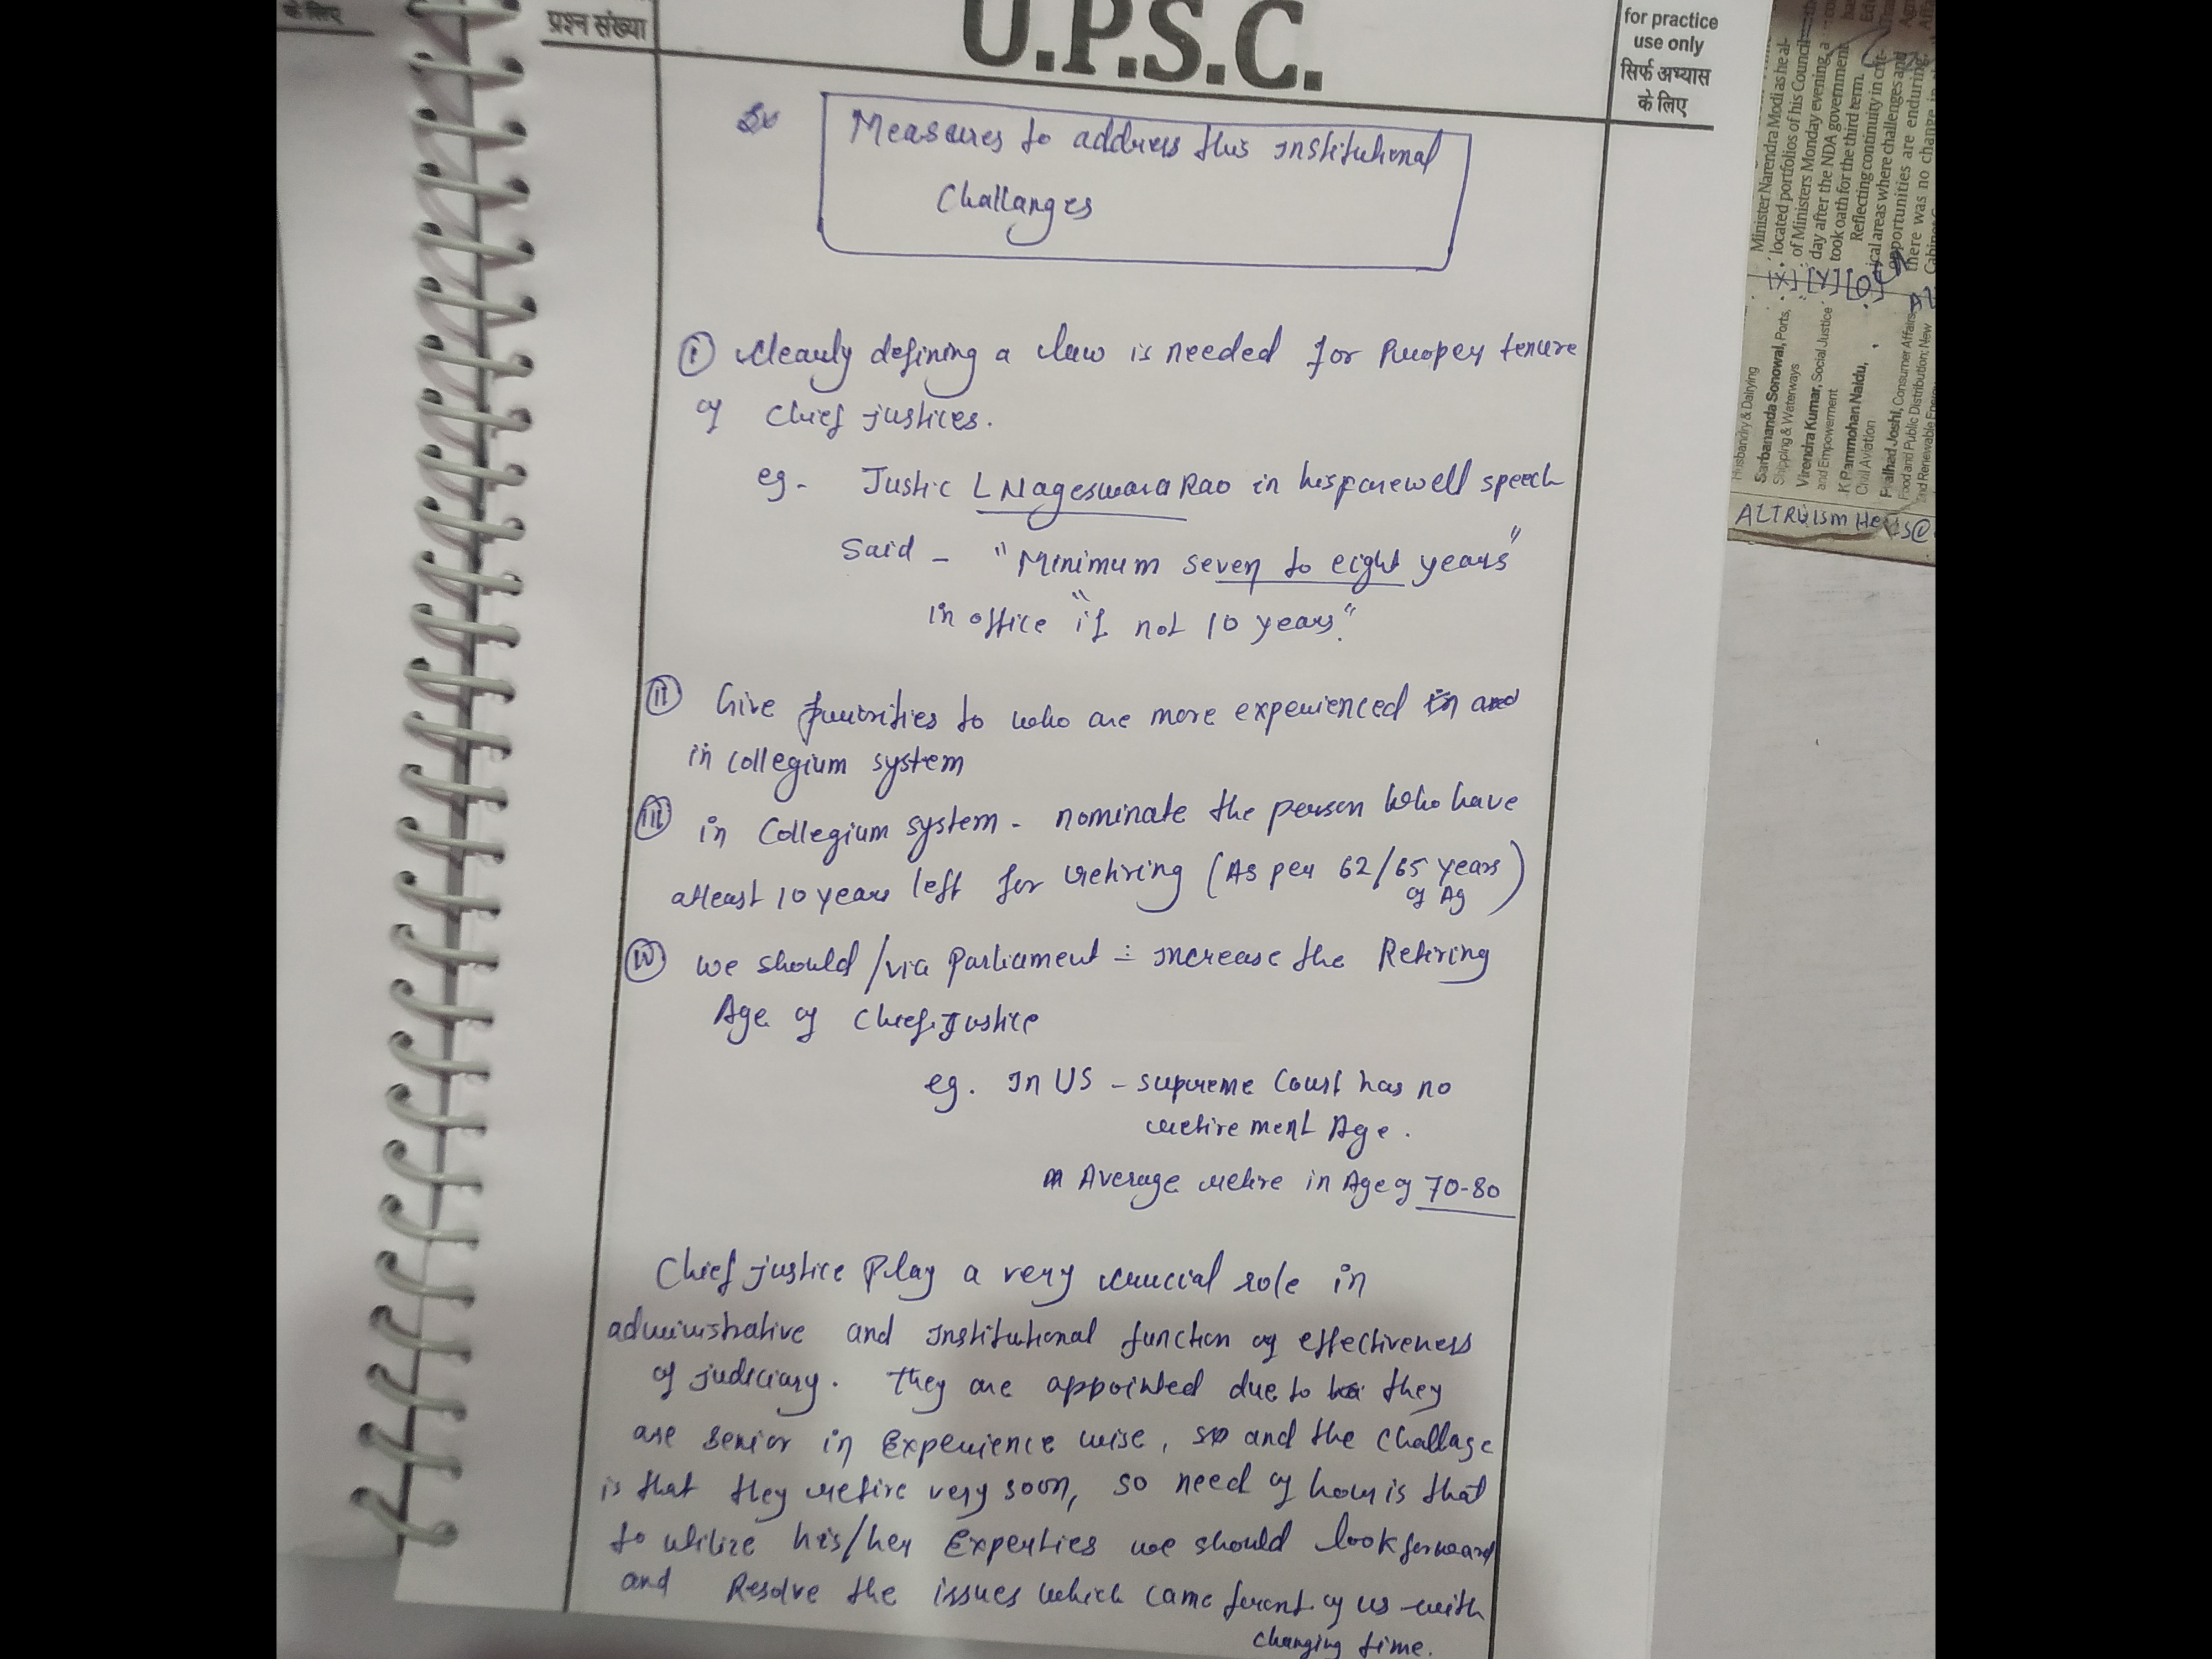 के लिए
प्रश्न संख्या
U.P.S.C.
for practice
use only
सिर्फ अभ्यास
के लिए
Measures to address this Institutional
Challanges
① Clearly defining a law is needed for Proper tenure
of Chief justices.
eg- Justic L Nageswara Rao in his farewell speech
Said - "Minimum seven to eight years"
in office "if not 10 years".
② Give priorities to who are more experienced in and
in collegium system
③ in Collegium system - nominate the person who have
atleast 10 years left for retiring (As per 62/65 years
of Ag)
④ we should/via Parliament - increase the Retiring
Age of Chief Justice
eg. In US - supreme Court has no
retirement Age.
Average retire in Age of 70-80
Chief justice Play a very crucial role in
administrative and Institutional function of effectiveness
of judiciary. They are appointed due to they
are senior in Experience wise, so and the Challage
is that they retire very soon, so need of hour is that
to utilize his/her Experties we should look forward
and Resolve the issues which came front of us with
changing time.
Minister Narendra Modi as he al-
located portfolios of his Council
of Ministers Monday evening, a
day after the NDA government
took oath for the third term.
Reflecting continuity in crit-
ical areas where challenges and
opportunities are enduring,
there was no change in
[X] [Y] [O]
Husbandry & Dairying
Sarbananda Sonowal, Ports,
Shipping & Waterways
Virendra Kumar, Social Justice
and Empowerment
K Rammohan Naidu,
Civil Aviation
Pralhad Joshi, Consumer Affairs,
Food and Public Distribution; New
and Renewable Energy
ALTRUISM